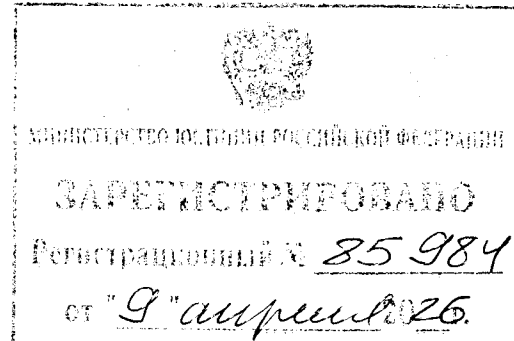 МИНИСТЕРСТВО ЮСТИЦИИ РОССИЙСКОЙ ФЕДЕРАЦИИ
ЗАРЕГИСТРИРОВАНО
Регистрационный № 85984
от "9" апреля 2026.